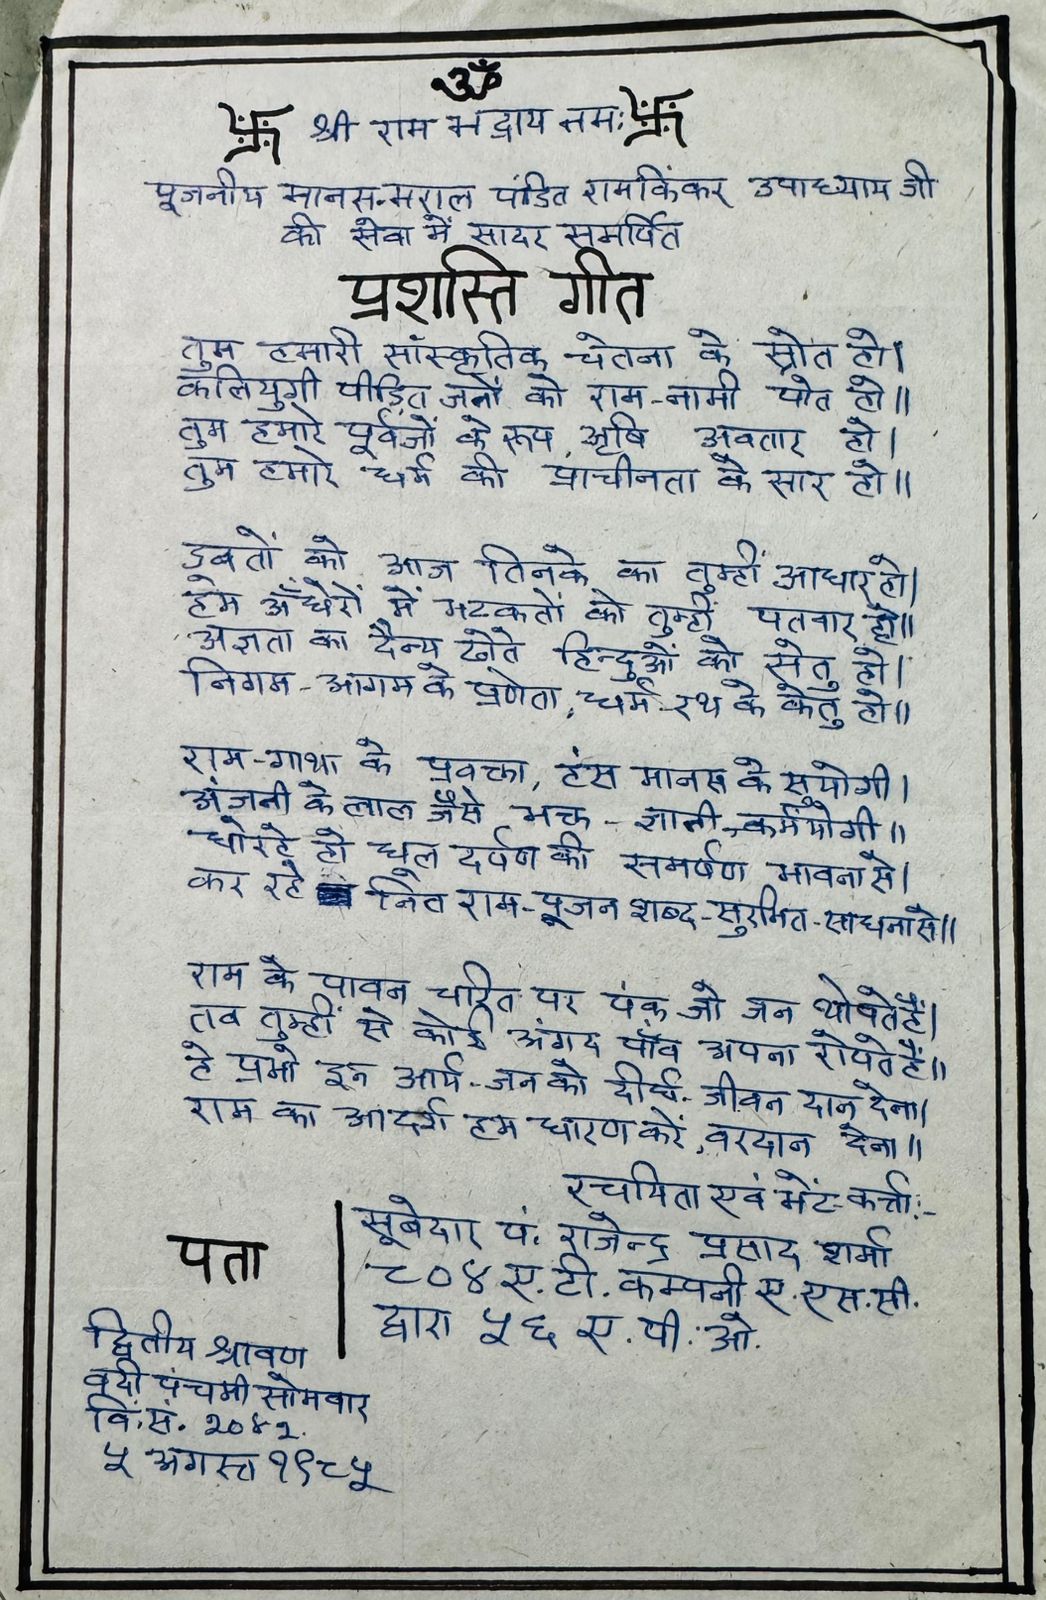 ॐ
卐 श्री राम भद्राय नमः 卐
पूजनीय मानस-मराल पंडित रामकिंकर उपाध्याय जी
की सेवा में सादर समर्पित
प्रशस्ति गीत
तुम हमारी सांस्कृतिक चेतना के स्रोत हो।
कलियुगी पीड़ित जनों को राम-नामी पोत हो॥
तुम हमारे पूर्वजों के रूप, ऋषि अवतार हो।
तुम हमारे धर्म की प्राचीनता के सार हो॥
डूबतों को आज तिनके का तुम्हीं आधार हो।
हम अँधेरों में भटकतों को तुम्हीं पतवार हो॥
अज्ञता का दैन्य खोते हिन्दुओं को सेतु हो।
निगम-आगम के प्रणेता, धर्म-रथ के केतु हो॥
राम-गाथा के प्रवक्ता, हंस मानस के सुयोगी।
अंजनी के लाल जैसे भक्त-ज्ञानी-कर्मयोगी॥
धो रहे हो धूल दर्पण की समर्पण भावना से।
कर रहे नित राम-पूजन शब्द-सुरभित-साधना से॥
राम के पावन चरित पर पंक जो जन थोपते हैं।
तब तुम्हीं से कोई अंगद पाँव अपना रोपते हैं॥
हे प्रभो इन आर्य-जन को दीर्घ-जीवन दान देना।
राम का आदर्श हम धारण करें, वरदान देना॥
रचयिता एवं भेंट-कर्त्ता:-
पता
सूबेदार पं. राजेन्द्र प्रसाद शर्मा
८०४ ए.टी. कम्पनी ए.एस.सी.
द्वारा ५६ ए.पी.ओ.
द्वितीय श्रावण
वदी पंचमी सोमवार
वि.सं. २०४२.
५ अगस्त १९८५